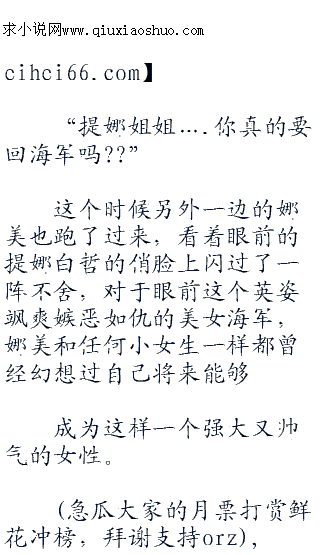 求小说网www.qiuxiaoshuo.com
cihci66.com】
“提娜姐姐....你真的要
回海军吗??”
这个时候另外一边的娜
美也跑了过来，看着眼前的
提娜白皙的俏脸上闪过了一
阵不舍，对于眼前这个英姿
飒爽嫉恶如仇的美女海军，
娜美和任何小女生一样都曾
经幻想过自己将来能够
成为这样一个强大又帅
气的女性。
(急瓜大家的月票打赏鲜
花冲榜，拜谢支持orz)，